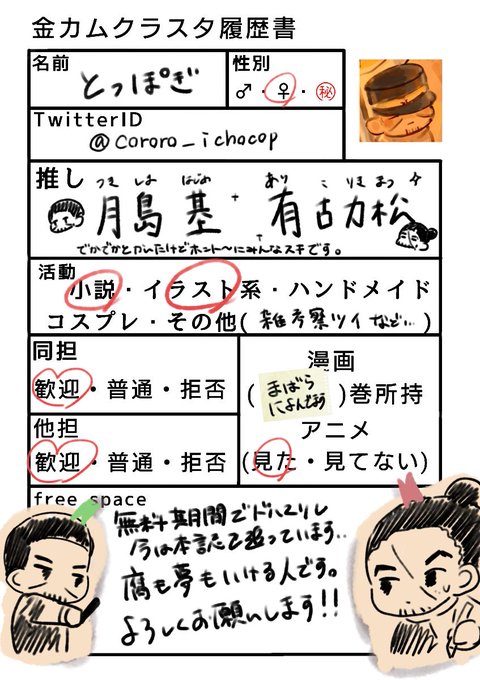 金カムクラスタ履歴書
名前
とっぽぎ
性別
♂・♀・㊙
TwitterID
@cororo_ichocop
推し
つきしま はじめ
月島 基
ありこりきまつ
有古力松
でかでかとかいたけどホント〜にみんなスキです。
活動
小説・イラスト系・ハンドメイド
コスプレ・その他(雑考察ツイなど…)
同担
歓迎・普通・拒否
他担
歓迎・普通・拒否
漫画
(まばらによんでます)巻所持
アニメ
(見た・見てない)
free space
無料期間でドハマりし
今は本誌で追っています..
腐も夢もいける人です。
よろしくお願いします!!